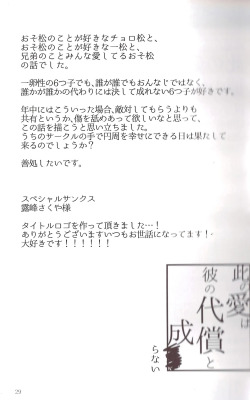 おそ松のことが好きなチョロ松と、
おそ松のことが好きな一松と、
兄弟のことみんな愛してるおそ松
の話でした。
一卵性の6つ子でも、誰が誰でもおんなじではなく、
誰かが誰かの代わりには決して成れない6つ子が好きです。
年中にはこういった場合、敵対してもらうよりも
共有というか、傷を舐めあって欲しいなと思って、
この話を描こうと思い立ちました。
うちのサークルの手で円周を幸せにできる日は果たして
来るのでしょうか?
善処したいです。
スペシャルサンクス
露峰さくや様
タイトルロゴを作って頂きました…!
ありがとうございますいつもお世話になってます!
大好きです!!!!!!
此の愛は
彼の代償と
成
らない
29